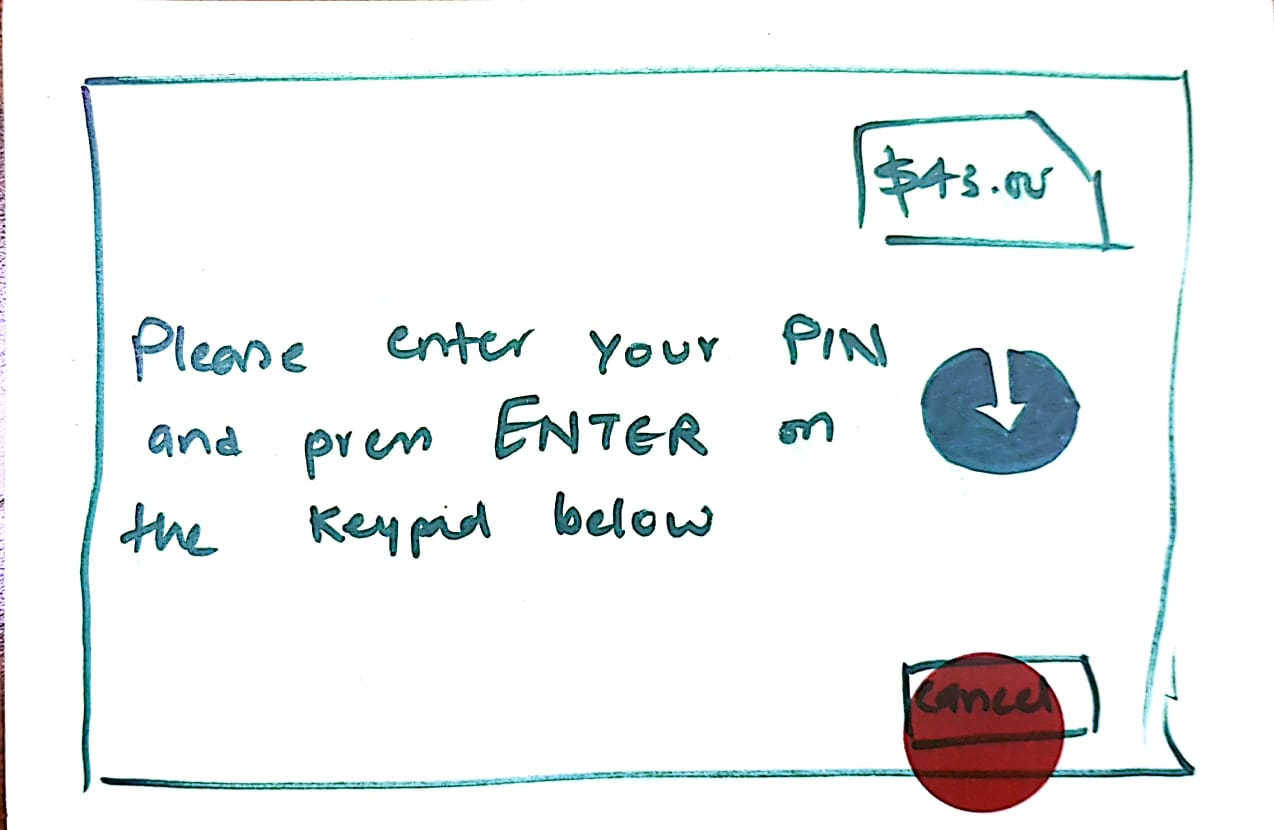 $43.00
Please enter your PIN
and press ENTER on
the keypad below
Cancel